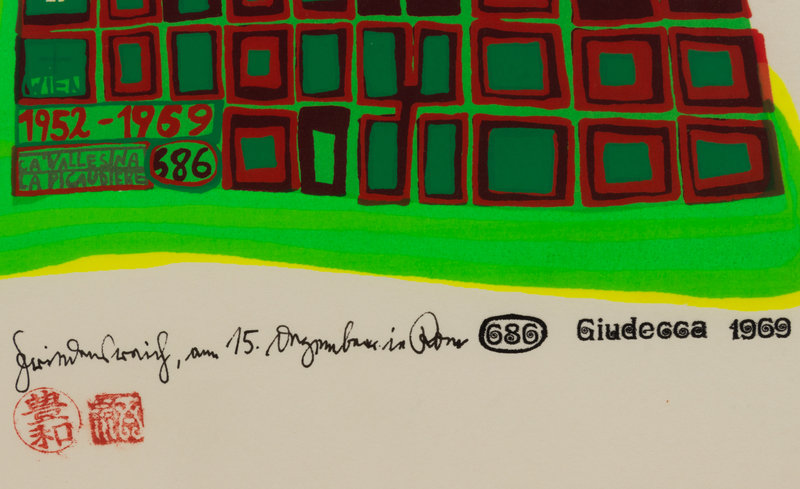 WIEN
1952-1969
LA VALLESINA
LA PICAUDIERE
686
Friedensreich, am 15. Dezember in Rom
686
Giudecca 1969
豊和